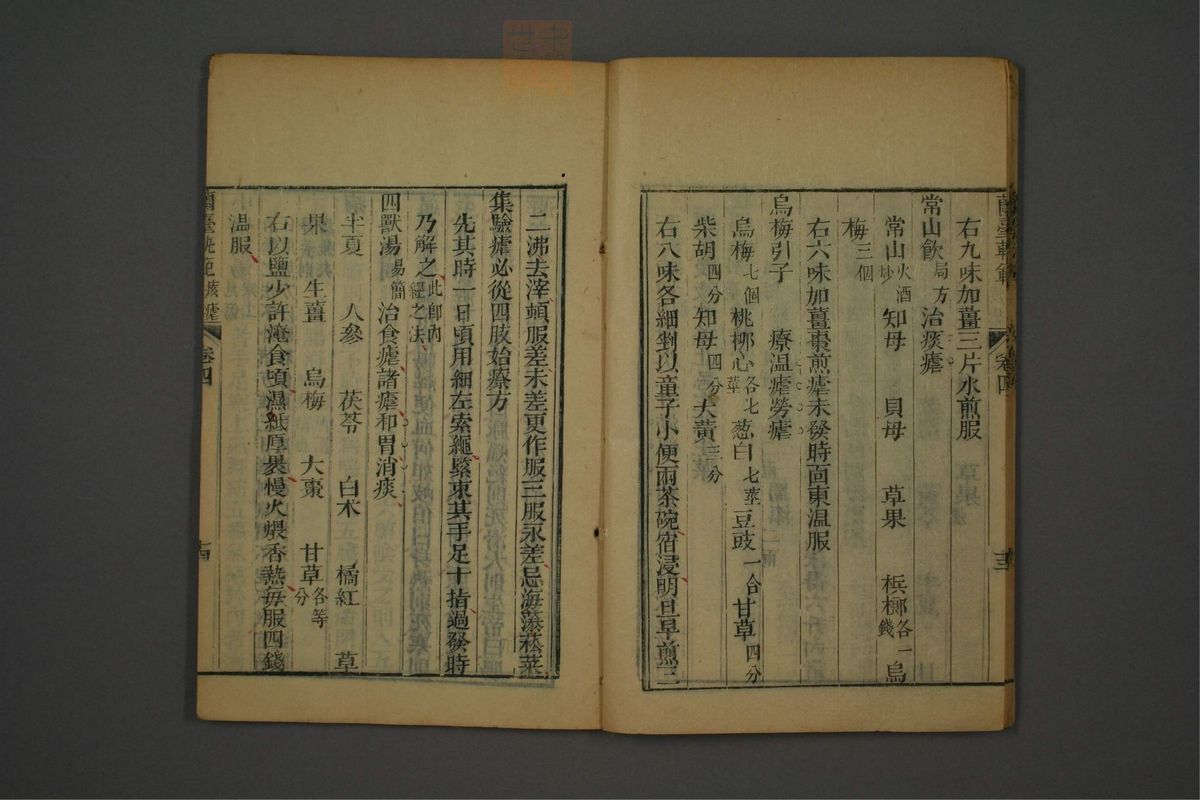 右九味加薑三片水煎服
常山飲局方治痰瘧
常山火酒炒 知母 貝母 草果 梹榔各一錢 烏
梅三個
右六味加薑棗煎瘧未發時面東溫服
烏梅引子 療溫瘧勞瘧
烏梅七個 桃柳心各七莖 葱白七莖 豆豉一合 甘草四分
柴胡四分 知母四分 大黃三分
右八味各細剉以童子小便兩茶碗宿浸明旦早煎三
卷四
二沸去滓頓服差未差更作服三服永差忌海藻菘菜
集驗瘧必從四肢始療方
先其時一日頃用細左索繩緊束其手足十指過發時
乃解之此即內經之法
四獸湯易簡 治食瘧諸瘧和胃消痰
半夏 人參 茯苓 白朮 橘紅 草
果 生薑 烏梅 大棗 甘草各等分
右以鹽少許淹食頃濕紙厚裹慢火煨香熟每服四錢
溫服
卷四